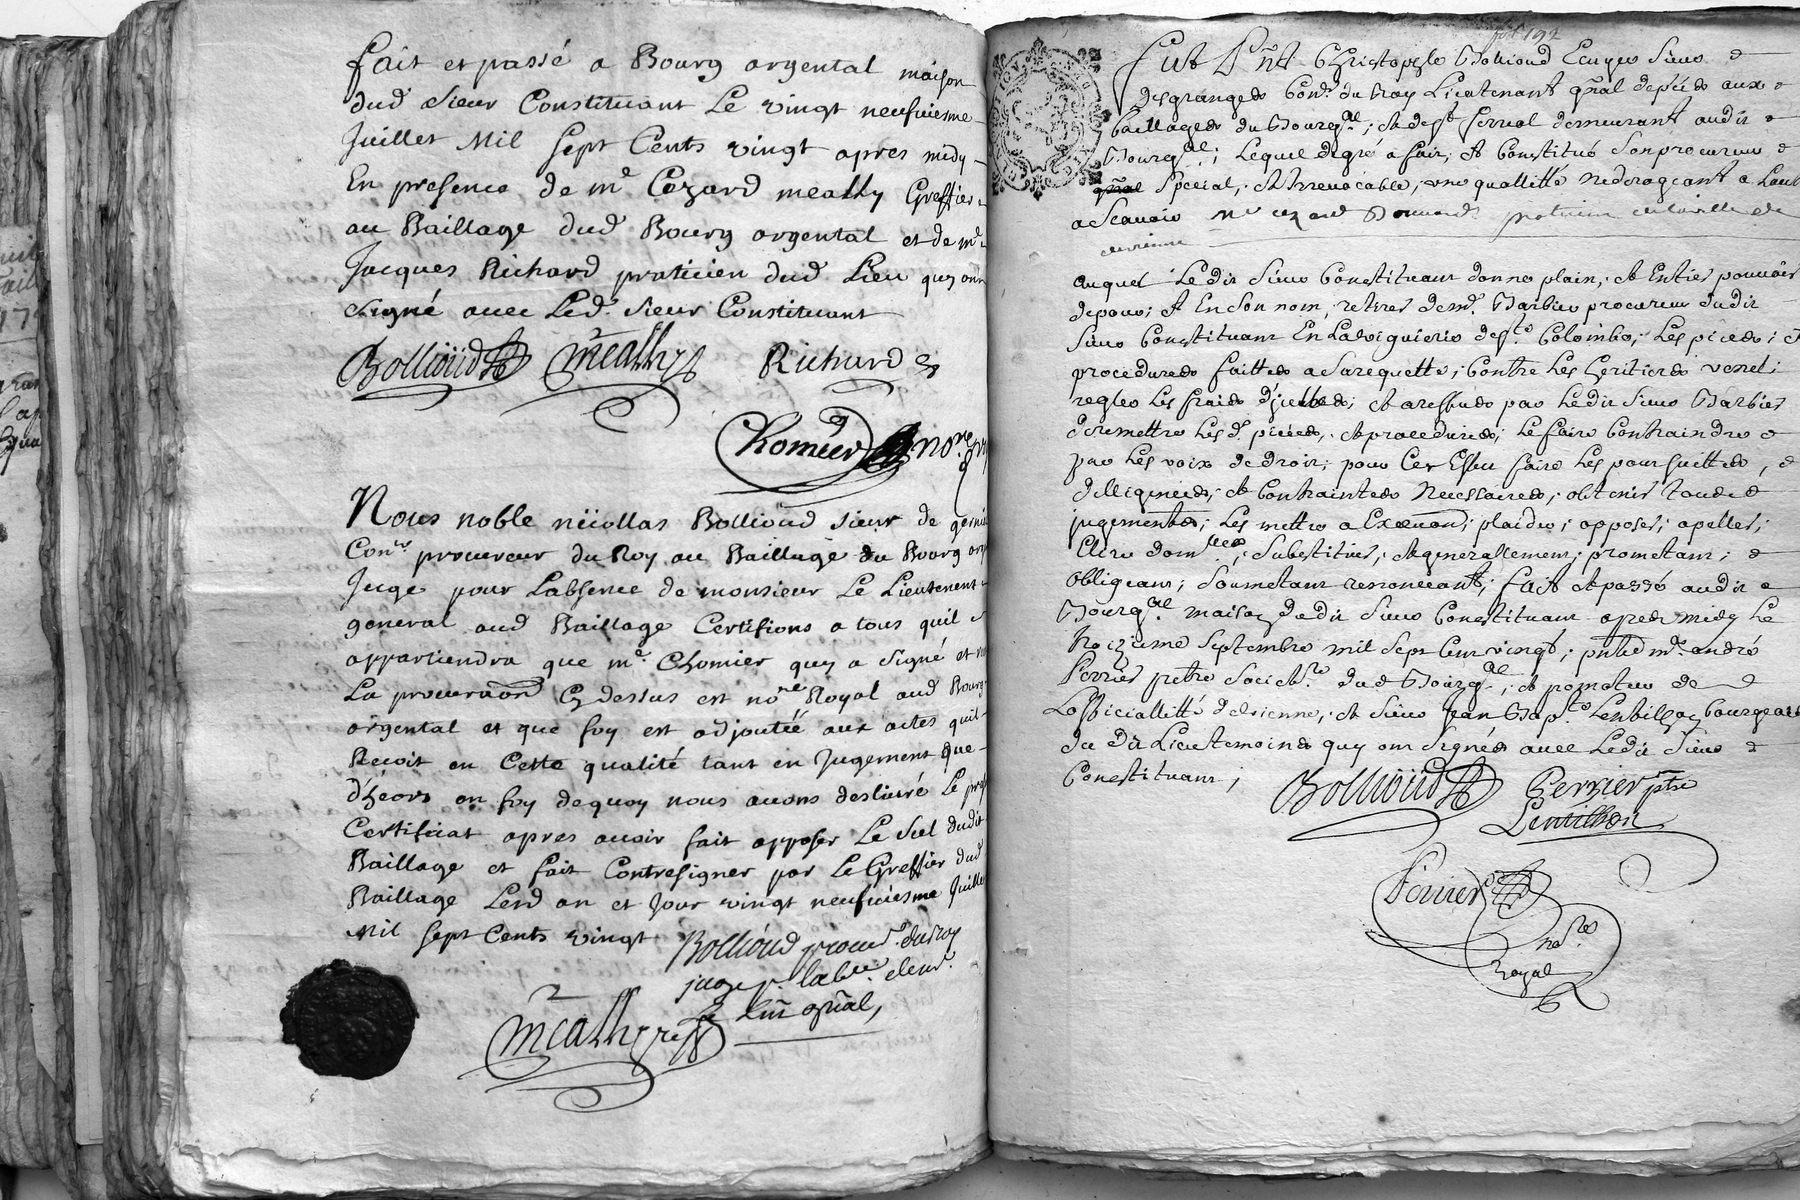 fait et passé a Bourg argental maison
dud sieur Constituant Le vingt neufviesme
Juillet Mil sept Cents vingt apres midy
En presence de me Cozard mealhy Greffier
au Baillage dud Bourg argental et de me
Jacques Richard praticien dud Lieu quy ont
signé avec Led. sieur Constituant
Bollioud meathy Richard
Chomier nore
Nous noble nicollas Bollioud sieur de
Conr procureur du Roy au Baillage du Bourg arg
Juge pour Labsence de monsieur Le Lieutenent
general aud Baillage Certifions a tous quil
appartiendra que me Chomier quy a signé et
La procuraon Cy dessus est nore Royal aud Bourg
argental et que foy est adjoutée aux actes quil
Recoit en Cette qualité tant en Jugement que
d'heors en foy dequoy nous avons deslivré Le
Certificat apres avoir fait apposer Le Scel dudit
Baillage et fait Contresigner par Le Greffier dud
Baillage Lesd an et Jour vingt neufviesme Juillet
Mil sept Cents vingt
Bollioud procur du roy
juge pr labce de mr
le Lnt gnal
meathy greff
fol 192
Fut pnt Christophle Bolioud Ecuyer sieur
desgranges Conr du Roy Lieutenant gnal
baillage du Bourgal demeurant audit
Bourgal; Lequel de gré a fait, et Constitué son procureur
gnal special, et irrevocable, une quallitté nedrogeant a Lautre
a scavoir me
auquel Ledit sieur Constituant donne plain, et Entier pouvoir
depour, et En son nom, retirer de mr Barbier procureur dudit
sieur Constituant En La viguierie de ste Colombe, Les pieces, et
procedures faittes a sa requette, Contre Les heritiers
regler Les fraix d'jcelles; et a reffus par Ledit sieur Barbier
de remettre Lesd. pieces, et procedures, Le faire Contraindre
par Les voix de droit; pour Cet Effet faire Les poursuittes,
dilligences, et Contraintes Necessaires, obtenir tous
jugements, Les mettre a Exeuon; plaider; opposer; apeller;
Elire domlle, substituer, et generallement; prometant;
obligeant; soumetant renoncant; fait et passé audit
Bourgal maison dudit sieur Constituant apres midy Le
troizieme septembre mil sept Cent vingt; me andré
Perrier petre dud Bourgal, et promoteur de
Lofficiallitté de vienne, et sieur Jean Bapte Lentilhon bourgeois
du dit Lieu temoins quy ont signés avec Ledit sieur
Constituant;
Bollioud Perrier ptre
Lentilhon
Ferrier
nore
royal